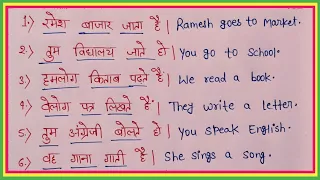 1.) रमेश बाजार जाता है | Ramesh goes to Market.
2.) तुम विद्यालय जाते हो | You go to School.
3.) हमलोग किताब पढ़ते हैं | We read a book.
4.) वेलोग पत्र लिखते हैं | They write a letter.
5.) तुम अंग्रेजी बोलते हो | You speak English.
6.) वह गाना गाती है | She sings a song.